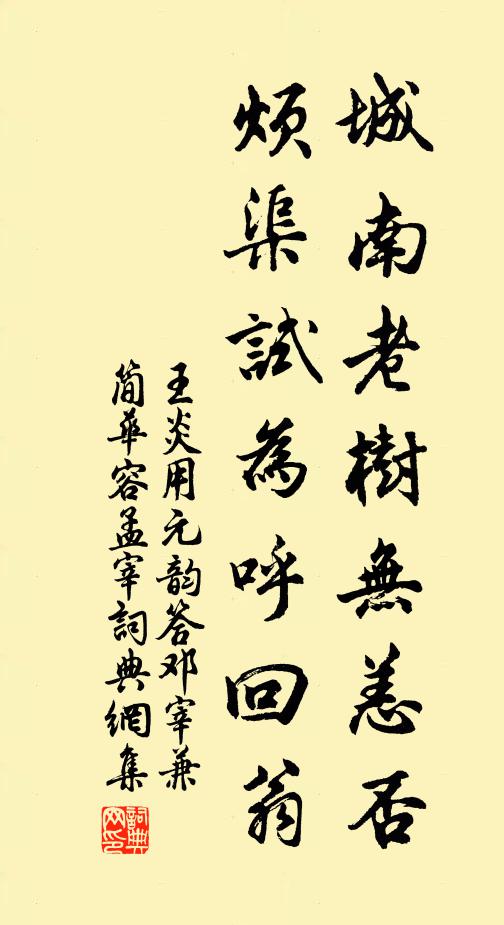 城南老樹無恙否
煩渠試為呼回翁
王炎用元韵答邓宰兼
简華容孟宰詞典網集
詞典網印